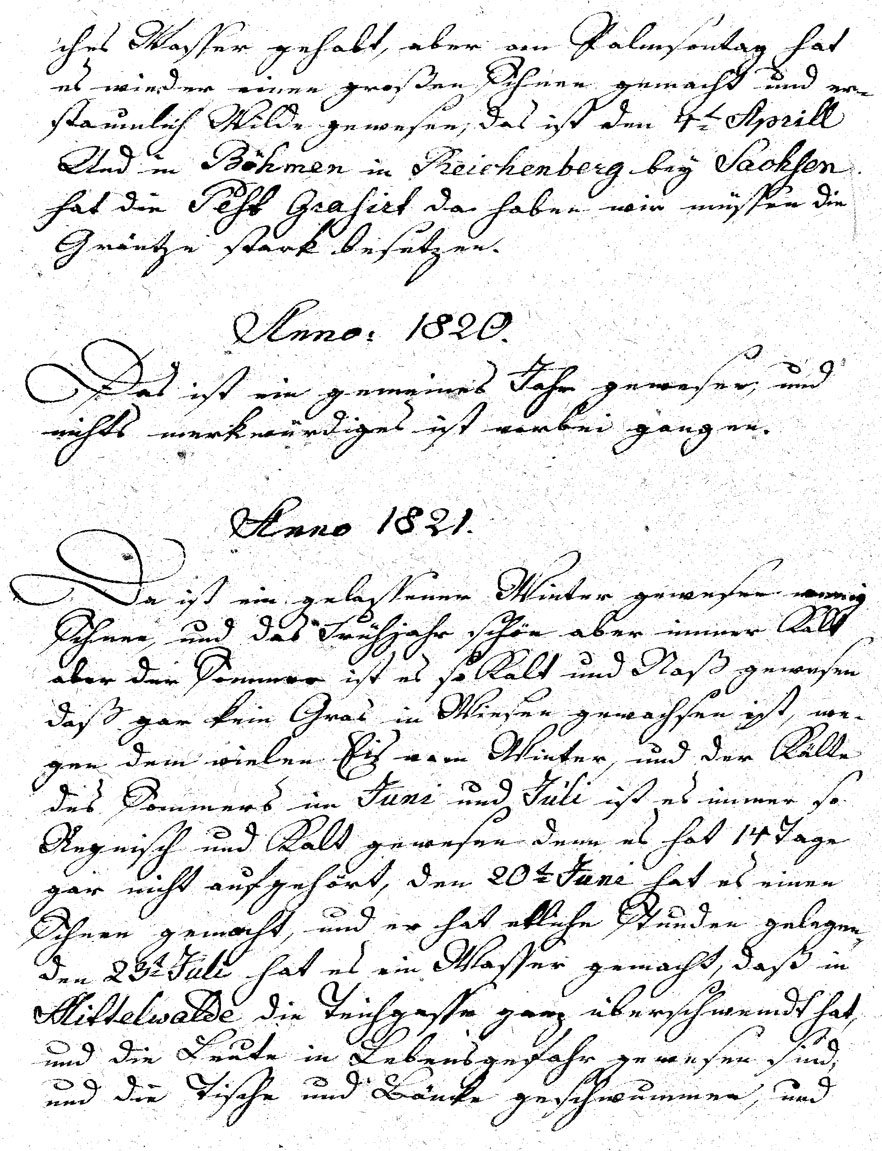 ches Wasser gehabt, aber am Palmsontag hat
es wieder einen großen Schnee gemacht und er-
staunlich Wilde gewesen, das ist den 4t Aprill
Und in Böhmen in Reichenberg bey Sachsen
hat die Pest Grasirt da haben wir müssen die
Gräntze stark besetzen.
Anno: 1820.
Das ist ein gemeines Jahr gewesen, und
nichts merkwürdiges ist vorbei gangen.
Anno 1821.
Da ist ein gelassener Winter gewesen wenig
Schnee, und das Frühjahr schön aber immer Kalt
aber der Sommer ist es so Kalt und Naß gewesen
daß gar kein Gras in Wiesen gewachsen ist, we-
gen dem vielen Eis vom Winter, und der Kälte
des Sommers im Juni und Juli ist es immer so
Regnisch und Kalt gewesen denn es hat 14 Tage
gar nicht aufgehört, den 20t Juni hat es einen
Schnee gemacht, und er hat etliche Stunden gelegen,
den 23t Juli hat es ein Wasser gemacht, daß in
Mittelwalde die Teichgasse ganz überschwemdt hat,
und die Leute in Lebensgefahr gewesen sind,
und die Tische und Bänke geschwummen, und